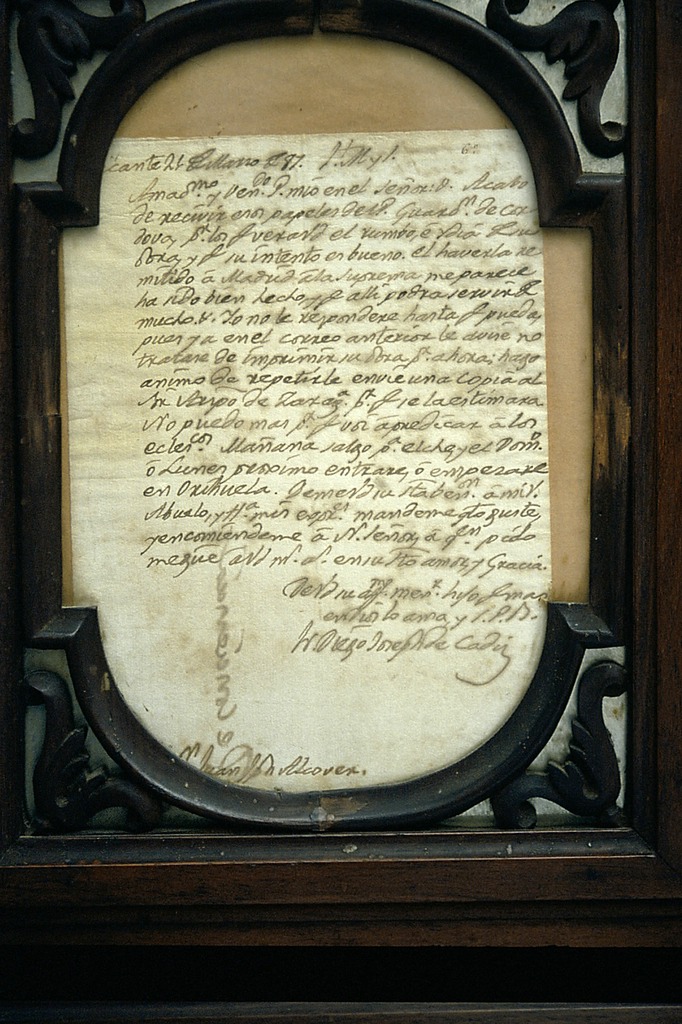 cante 21 de Marzo de 87. J. M. y J.
Amad.mo y Ven.do P. mio en el Señor: S. Acabo
de recivir esos papeles del P. Guard.n de Cor
dova, p.r los q verá Vd el rumbo, e ydea de su
Obra, y q su intento es bueno. el haverla re
mitido á Madrid á la Suprema me parece
ha sido bien hecho, y q alli podrá servir de
mucho. Yo no le responderé hasta q pueda,
pues ya en el correo anterior le avisé no
tratase de imprimir su Obra p.r ahora; hago
animo de repetirle envie una copia al
Sr Arzpo de Zarag.a p.r q se la estimara.
No puedo mas p.r q voi a predicar á los
ecles.cos Mañana salgo p.a elche, y el Dom.o
ó Lunes proximo entraré, ó empezaré
en Orihuela. Deme Vd su Sta ben.on á mi V.
Abuelo, y H.a mis expr.s mandeme qto guste,
y encomiendeme á N. Señor, á q.n pido
me gue á Vd m.s a.s en su Sto amor, y Gracia.
De Vd su aff.mo men.r hijo q mas
en Cristo lo ama, y S. P. B.
Fr. Diego Joseph de Cadiz
Juan Alcover.